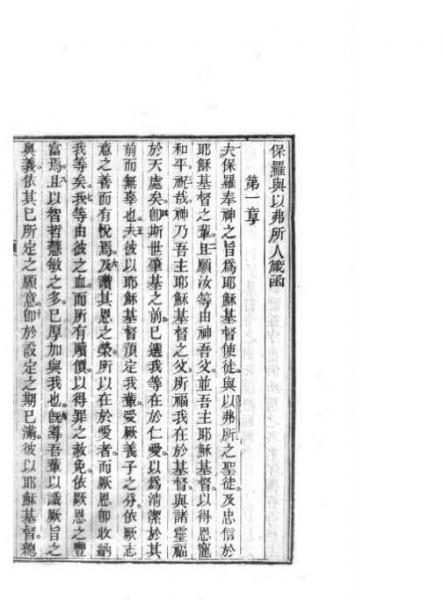 保羅與以弗所人箴函
第一章
夫保羅奉神之旨爲耶穌基督使徒。與以弗所之聖徒。及忠信於
耶穌基督之輩。且願汝等由神吾父。並吾主耶穌基督。以得恩寵
和平。祝哉神乃吾主耶穌基督之父。所福我在於基督。與諸靈福
於天處矣。卽斯世肇基之前。已選我等在於仁愛。以爲清潔於其
前而無辜也。夫彼以耶穌基督預定我輩。受厥義子之分。依厥志
意之善而有悅焉。及讚其恩之榮。所以在於愛者。而厥恩卽收納
我等矣。我等由彼之血。而所有贖價。以得罪之赦免。依厥恩之豐
富焉。且以智哲慧敏之多。已厚加與我也。旣導吾輩以識厥旨之
奧義。依其已所定之願意。卽於設定之期已滿。彼以耶穌基督。總